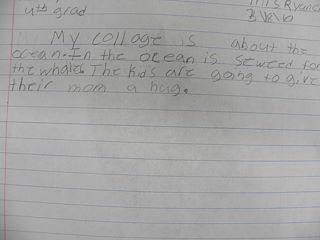 4th grad
My collage is about the
ocean. In the ocean is seweed for
the whales. The kids are going to give
their mom a hug.